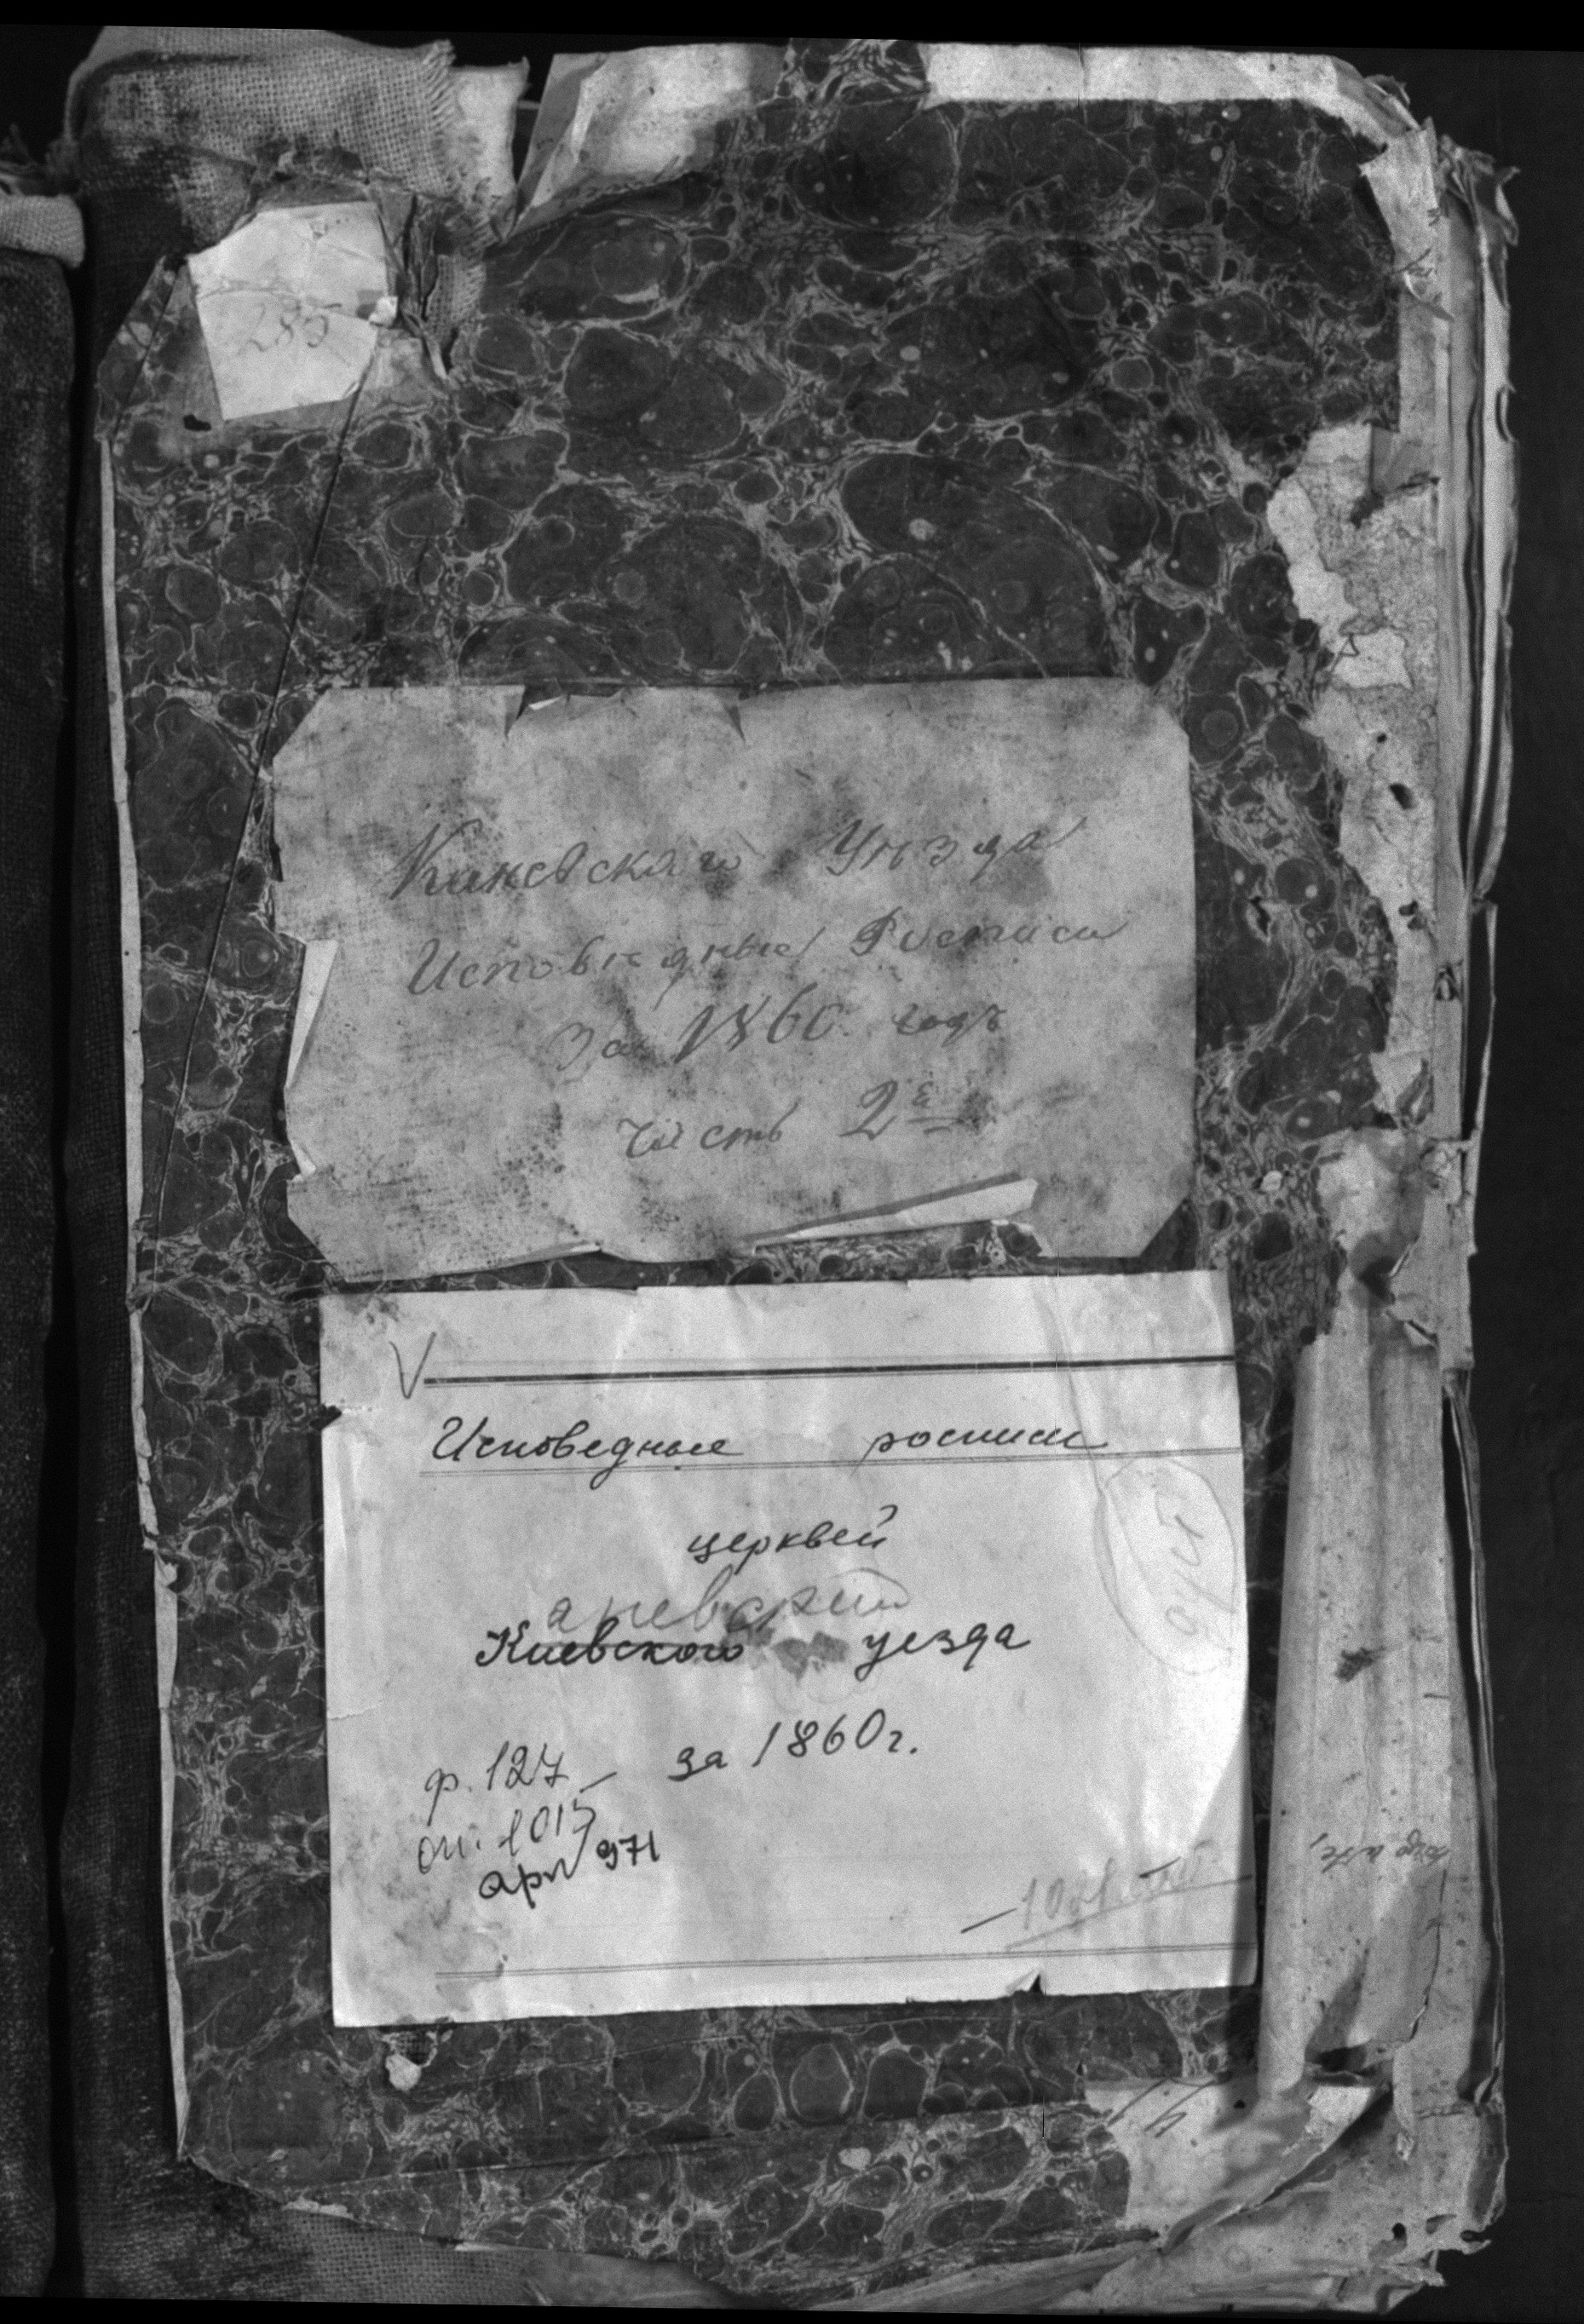 285
Каневскаго Уѣзда
Исповѣдные Росписи
за 1860 годъ
Часть 2ᵃ
Исповедные росписи
церквей
аневский
Киевского уезда
за 1860г.
ф. 127
оп. 1015
арх 971